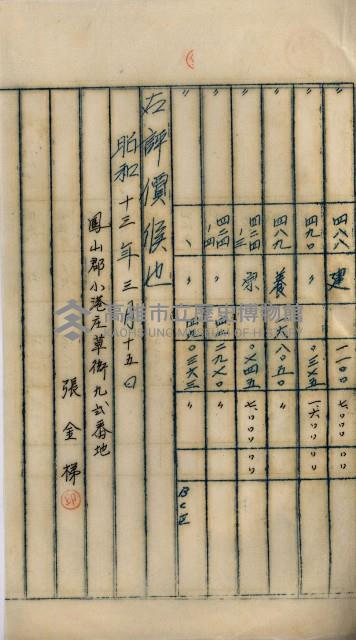 〃 四八八 建 一一〇〇 七、〇〇〇〇〇
〃 四九〇 〃 〇三〤五 一、六〇〇〇〇
〃 四八九 養 一六八〇五〇 〃
〃 四二四ノ三 〇〤四五 七、〇〇〇〇〇
〃 四二四ノ四 〃 四二九〤〇 〃
四九〇三六三 〃
右評價候也
昭和十三年三月十五日
鳳山郡小港庄草衙九弍番地
張金梯
印
高雄市立歷史博物館
KAOHSIUNG MUSEUM OF HISTORY